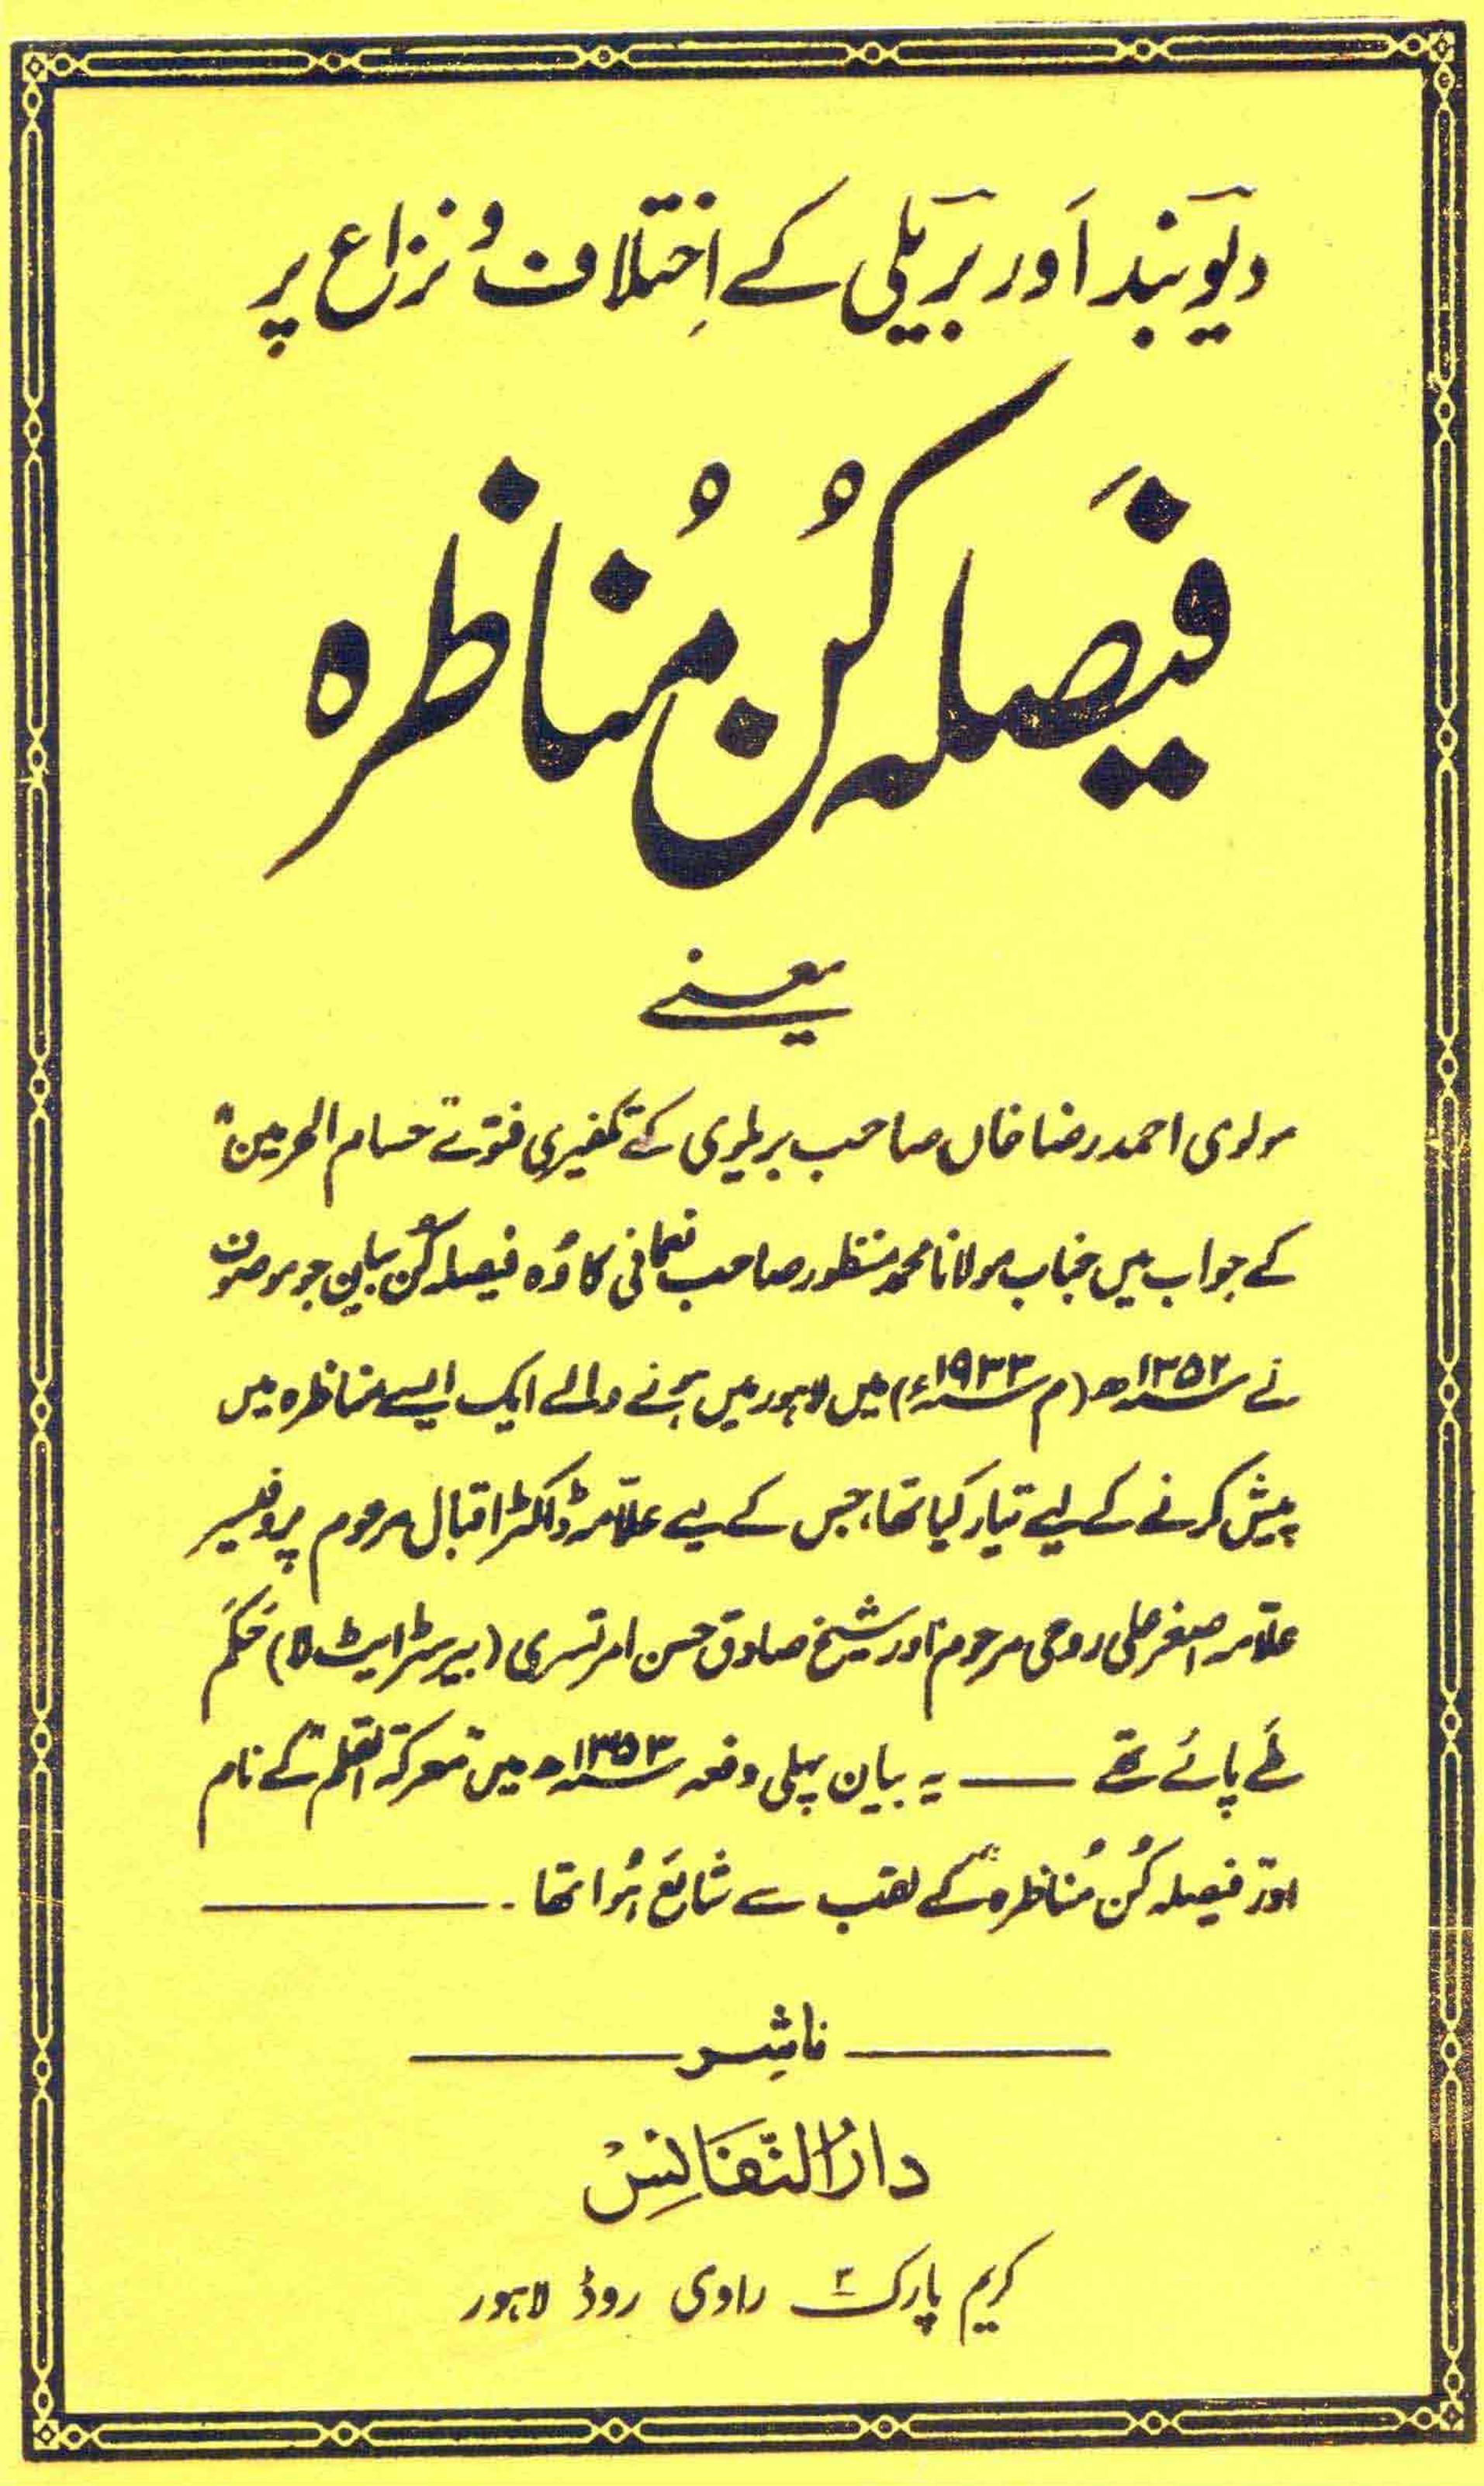 دیوبند اَور بَریلی کے اِختلاف و نزاع پر
فَیصلہ کُن مُناظرہ
یعنی
مولوی احمد رضا خاں صاحب بریلوی کے تکفیری فتوے "حسام الحرمین"
کے جواب میں جناب مولانا محمد منظور صاحب نعمانی کا وُہ فیصلہ کُن بیان جو موصوف
نے ۱۳۵۲ھ (م ۱۹۳۳ء) میں لاہور میں ہونے والے ایک ایسے مناظرہ میں
پیش کرنے کے لیے تیار کیا تھا، جس کے لیے علّامہ ڈاکٹر اقبال مرحوم پروفیسر
علّامہ اصغر علی روحی مرحوم اور شیخ صادق حسن امرتسری (بیرسٹر ایٹ لا) حَکَم
طے پائے تھے ـــــ یہ بیان پہلی دفعہ ۱۳۵۳ھ میں "معرکۃ القلم" کے نام
اور "فیصلہ کُن مُناظرہ" کے لقب سے شائع ہُوا تھا۔
ناشِر
دارُالنّفائِسْ
کریم پارک ۲ راوی روڈ لاہور